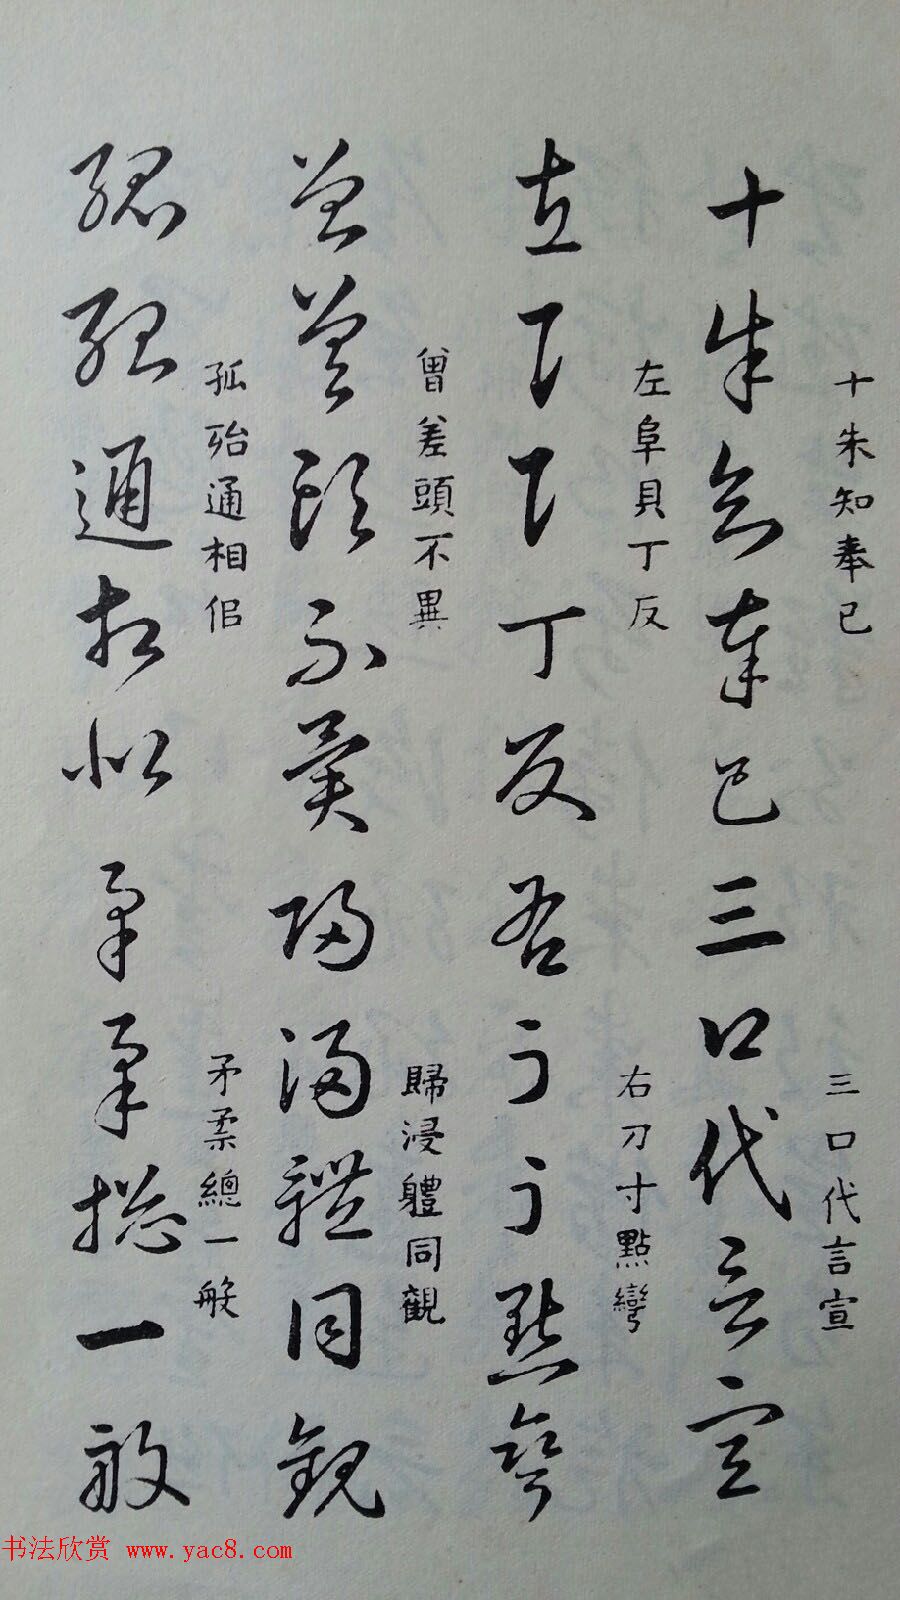 十朱知奉已三口代言宣
十朱知奉已
三口代言宣
左阜貝丁反右刀寸點彎
左阜貝丁反
右刀寸點彎
曾差頭不異歸浸體同觀
曾差頭不異
歸浸體同觀
孤殆通相似矛柔總一般
孤殆通相佀
矛柔總一般
书法欣赏 www.yac8.com